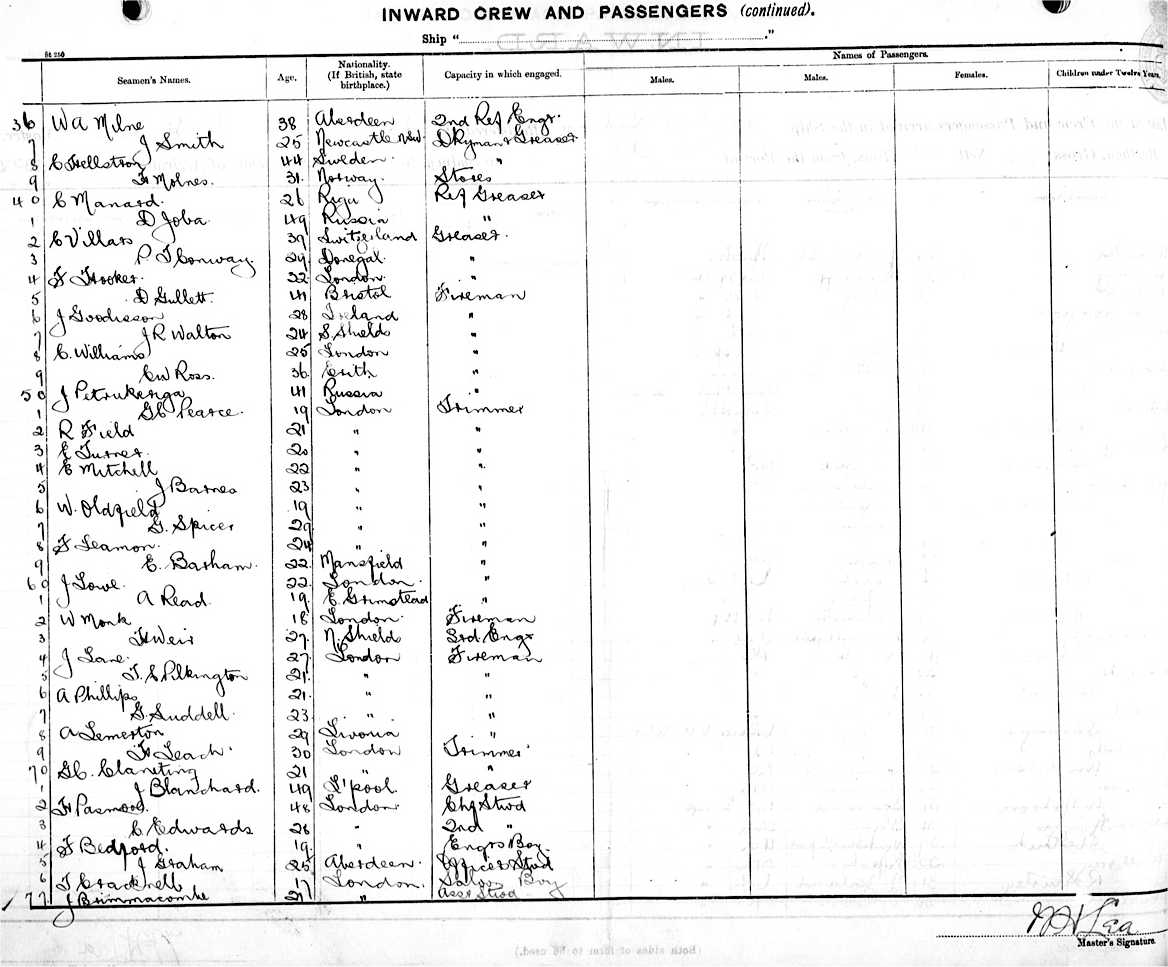 INWARD CREW AND PASSENGERS (continued).
Ship "
St 230
Seamen's Names. Age. Nationality. (If British, state birthplace.) Capacity in which engaged. Names of Passengers.
Males. Males. Females. Children under Twelve Years.
36 W A Milne 38 Aberdeen 2nd Ref Engr
7 J Smith 25 Newcastle NSW Dkyman & Greaser
8 C Hellstron 44 Sweden "
9 H Molnes. 31. Norway. Stores
40 C Manard. 26 Riga Ref Greaser
1 D Joba 49 Russia "
2 C Villars 39 Switzerland Greaser.
3 P J Conway. 29 Donegal. "
4 F Hooker. 22 London. "
5 D Gullett. 41 Bristol Fireman
6 J Goodisson 28 Ireland "
7 J R Walton 24 S. Shields "
8 C. Williams 25 London "
9 C W Ross. 36 Erith "
50 J Petrukenga 41 Russia "
1 G C Pearce. 19 London Trimmer
2 R Field 21 " "
3 E Turner. 20 " "
4 E Mitchell 22 " "
5 J Barnes 23 " "
6 W. Oldfield 19 " "
7 G. Spicer 29 " "
8 F Leamon. 24 " "
9 E. Barham. 22 Mansfield "
60 J Lowe. 22 London. "
1 A Read 19 E. Grinstead "
2 W Monk 18 London. Fireman
3 H Weir 27 N. Shield 3rd Engr
4 J Lane. 27 London Fireman
5 T. C Pilkington 21. " "
6 A Phillips 21. " "
7 G. Suddell. 23 " "
8 A Lemerton 29 Livonia "
9 H Leach. 30 London Trimmer
70 G C. 21 " "
1 J Blanchard. 49 L'pool Greaser
2 H Pasmood. 48 London. Chf Stwd
3 C Edwards 28 " 2nd "
4 F Bedford. 19. " Engrs Boy.
5 J Graham 25 Aberdeen. Officers Stwd
6 T Cracknell 17 London. Boy
77 J Brimmacombe 21 " Asst Stwd
Master's Signature.
(Both sides of form to be used.)